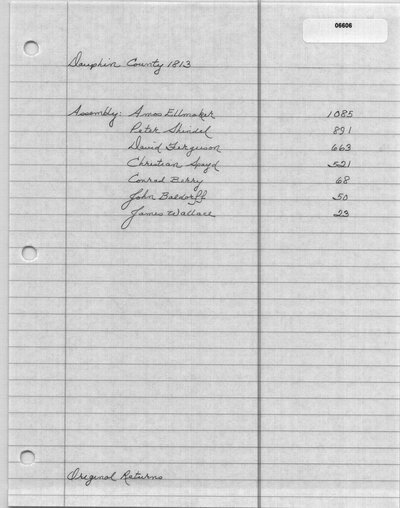 06606
Dauphin County 1813
Assembly: Amos Ellmaker 1085
Peter Shindel 891
David Ferguson 663
Christian Spayd 521
Conrad Berry 68
John Basdorff 50
James Wallace 23
Original Returns